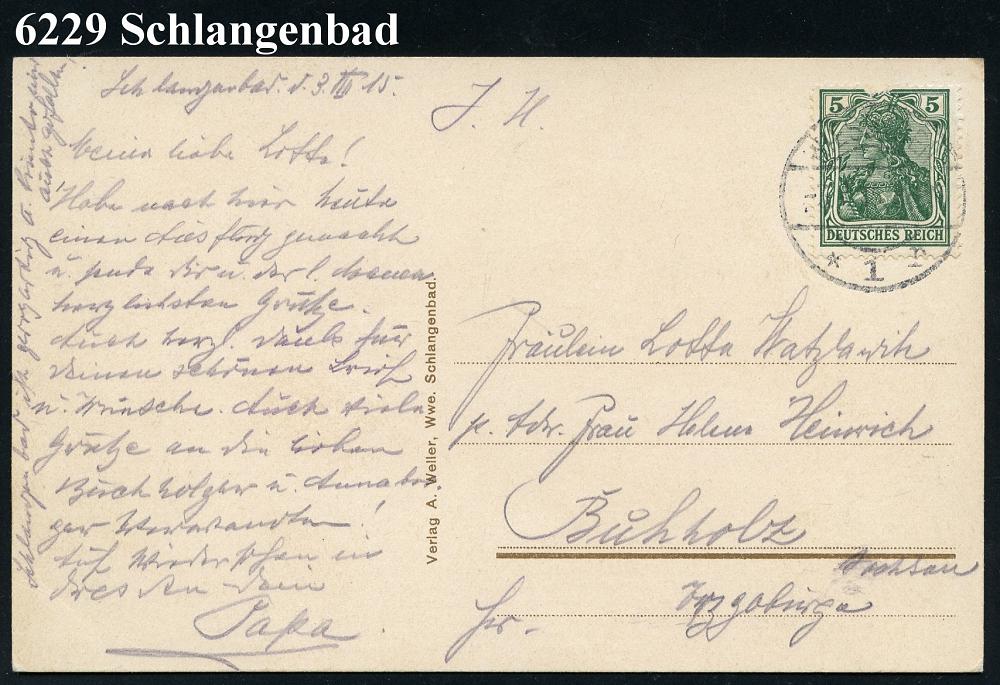 6229 Schlangenbad
Schlangenbad. d. 3. VII 15.
Meine liebe Lotte!
Habe nach hier heute
einen Ausflug gemacht
u. sende Dir u. der l. Mama
herzlichsten Grüße.
Auch herzl. Dank für
Deinen schönen Brief
u. Wünsche. Auch viele
Grüße an die lieben
Buchholzer u. Annaber-
ger Verwandten!
Auf Wiedersehen in
Dresden Dein
Papa
Schlangenbad ist großartig u.
Verlag A. Weller, Wwe. Schlangenbad.
5 5
DEUTSCHES REICH
* 1 n
Fräulein Lotte Watzlawik
p. Adr. Frau Helene Heinrich
Buchholz
Sachsen
Erzgebirge